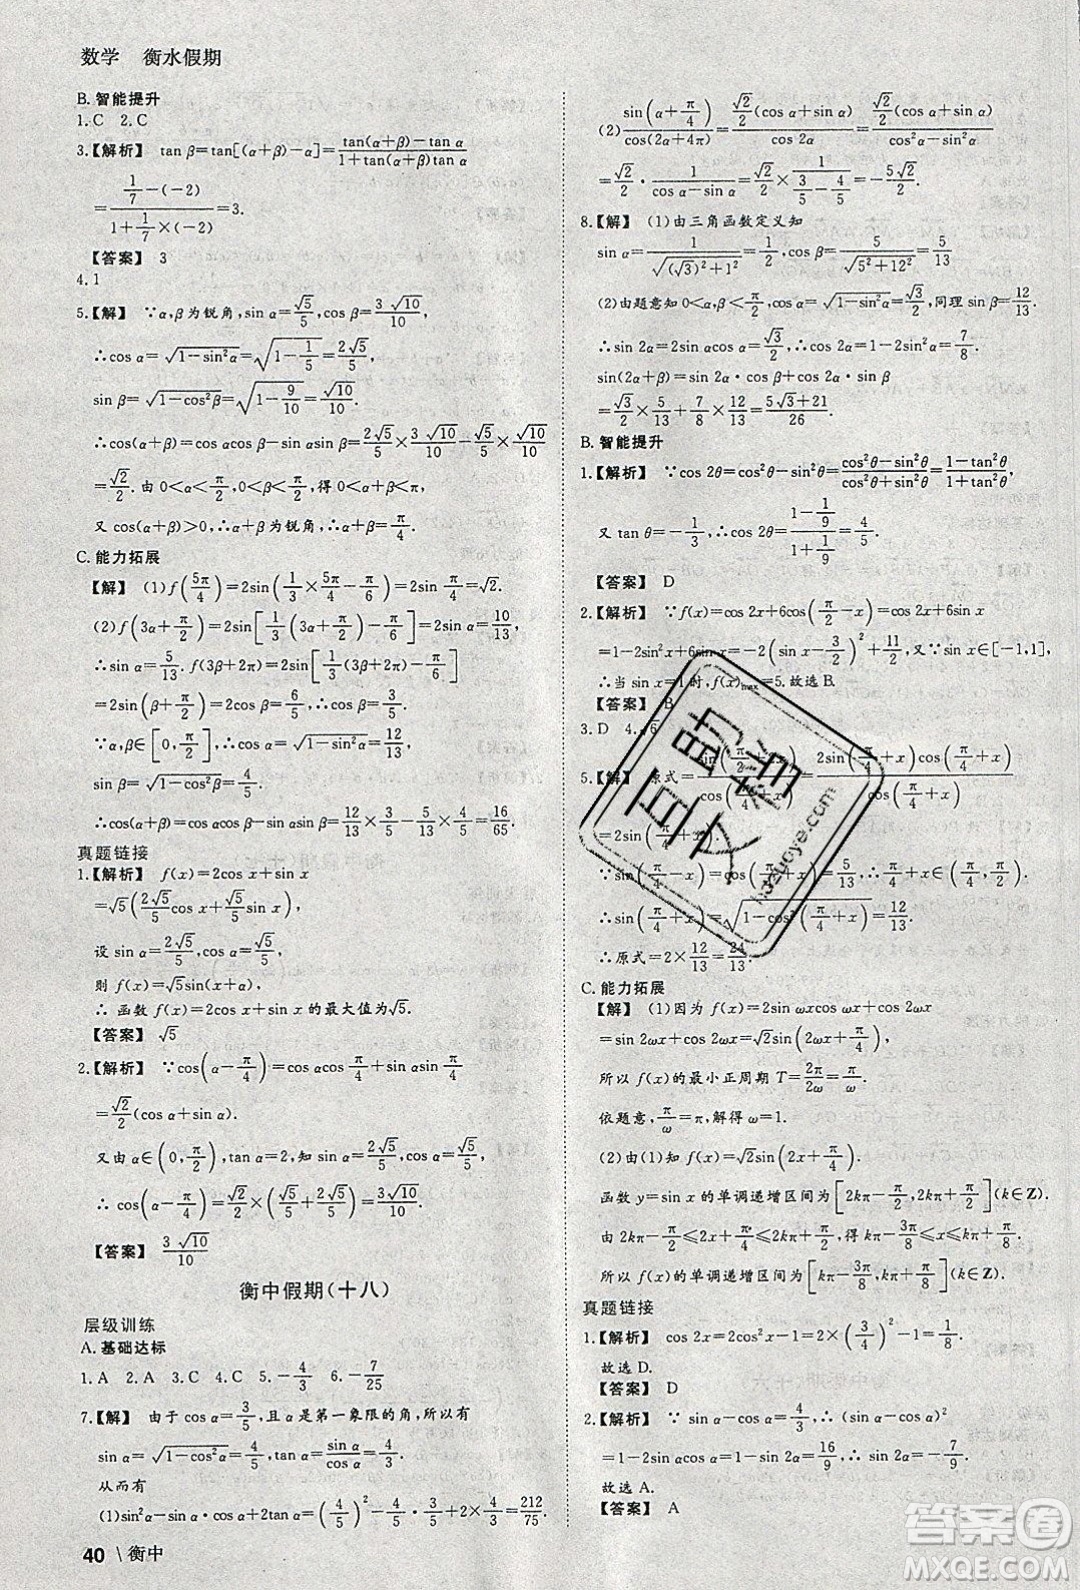 数学 衡水假期
B. 智能提升
1.C 2.C
3.【解析】 tan β=tan[(α+β)-α]=(tan(α+β)-tan α)/(1+tan(α+β)tan α)
=(1/7-(-2))/(1+1/7×(-2))=3.
【答案】 3
4.1
5.【解】 ∵α,β为锐角,sin α=√5/5,cos β=3√10/10,
∴cos α=√(1-sin²α)=√(1-1/5)=2√5/5,
sin β=√(1-cos²β)=√(1-9/10)=√10/10.
∴cos(α+β)=cos αcos β-sin αsin β=2√5/5×3√10/10-√5/5×√10/10=
√2/2. 由 0<α<π/2,0<β<π/2,得 0<α+β<π,
又 cos(α+β)>0,∴α+β为锐角,∴α+β=π/4.
C. 能力拓展
【解】 (1)f(5π/4)=2sin(1/3×5π/4-π/6)=2sin π/4=√2.
(2)f(3α+π/2)=2sin[1/3(3α+π/2)-π/6]=10/13,
∴sin α=5/13. f(3β+2π)=2sin[1/3(3β+2π)-π/6]
=2sin(β+π/2)=2cos β=6/5,∴cos β=3/5.
∵α,β∈[0,π/2],∴cos α=√(1-sin²α)=12/13,
sin β=√(1-cos²β)=4/5.
∴cos(α+β)=cos αcos β-sin αsin β=12/13×3/5-5/13×4/5=16/65.
真题链接
1.【解析】 f(x)=2cos x+sin x
=√5(2√5/5 cos x+√5/5 sin x),
设 sin α=2√5/5,cos α=√5/5,
则 f(x)=√5sin(x+α),
∴ 函数 f(x)=2cos x+sin x 的最大值为√5.
【答案】 √5
2.【解析】 ∵cos(α-π/4)=cos αcos π/4+sin αsin π/4=
√2/2(cos α+sin α).
又由 α∈(0,π/2),tan α=2,知 sin α=2√5/5,cos α=√5/5,
∴cos(α-π/4)=√2/2×(√5/5+2√5/5)=3√10/10.
【答案】 3√10/10
衡中假期(十八)
层级训练
A. 基础达标
1.A 2.A 3.C 4.C 5.-4/3 6.-7/25
7.【解】 由于 cos α=3/5,且 α 是第一象限的角,所以有
sin α=√(1-cos²α)=4/5,tan α=sin α/cos α=4/3.
从而有
(1)sin²α-sin αcos α+2tan α=(4/5)²-4/5·3/5+2×4/3=212/75.
(2)sin(α+π/4)/cos(2α+4π)=√2/2(cos α+sin α)/cos 2α=√2/2(cos α+sin α)/(cos²α-sin²α)=
√2/2·1/(cos α-sin α)=√2/2×1/(3/5-4/5)=-5√2/2.
8.【解】 (1)由三角函数定义知
sin α=1/√((√3)²+1²)=1/2,cos β=5/√(5²+12²)=5/13.
(2)由题意知 0<α,β<π/2,cos α=√(1-sin²α)=√3/2,同理 sin β=12/13.
∴sin 2α=2sin αcos α=√3/2,cos 2α=1-2sin²α=7/8.
sin(2α+β)=sin 2α·cos β+cos 2α·sin β
=√3/2×5/13+7/8×12/13=(5√3+21)/26.
B. 智能提升
1.【解析】 ∵cos 2θ=cos²θ-sin²θ=(cos²θ-sin²θ)/(cos²θ+sin²θ)=(1-tan²θ)/(1+tan²θ),
又 tan θ=-1/3,∴cos 2θ=(1-1/9)/(1+1/9)=4/5.
【答案】 D
2.【解析】 ∵f(x)=cos 2x+6cos(π/2-x)=cos 2x+6sin x
=1-2sin²x+6sin x=-2(sin x-3/2)²+11/2,又 sin x∈[-1,1],
∴当 sin x=1 时,f(x)max=5.故选 B.
【答案】 B
3.D 4.√6
5.【解】 原式=sin(π/2+2x)/cos(π/4+x)=2sin(π/4+x)cos(π/4+x)/cos(π/4+x)
=2sin(π/4+x).
∵sin(π/4-x)=cos(π/4+x)=5/13,且0<x<π/4,∴π/4+x∈(π/4,π/2),
∴sin(π/4+x)=√(1-cos²(π/4+x))=12/13,
∴原式=2×12/13=24/13.
C. 能力拓展
【解】 (1)因为 f(x)=2sin ωxcos ωx+cos 2ωx
=sin 2ωx+cos 2ωx=√2sin(2ωx+π/4),
所以 f(x)的最小正周期 T=2π/2ω=π/ω.
依题意,π/ω=π,解得 ω=1.
(2)由(1)知 f(x)=√2sin(2x+π/4).
函数 y=sin x 的单调递增区间为[2kπ-π/2,2kπ+π/2](k∈Z).
由 2kπ-π/2≤2x+π/4≤2kπ+π/2,得 kπ-3π/8≤x≤kπ+π/8.
所以 f(x)的单调递增区间为[kπ-3π/8,kπ+π/8](k∈Z).
真题链接
1.【解析】 cos 2x=2cos²x-1=2×(3/4)²-1=1/8.
故选 D.
【答案】 D
2.【解析】 ∵ sin α-cos α=4/3,∴(sin α-cos α)²
=1-2sin αcos α=1-sin 2α=16/9,∴sin 2α=-7/9.
故选 A.
【答案】 A
40 \ 衡中
作业百文
h3zuoye.com
答案圈
MXQE.COM